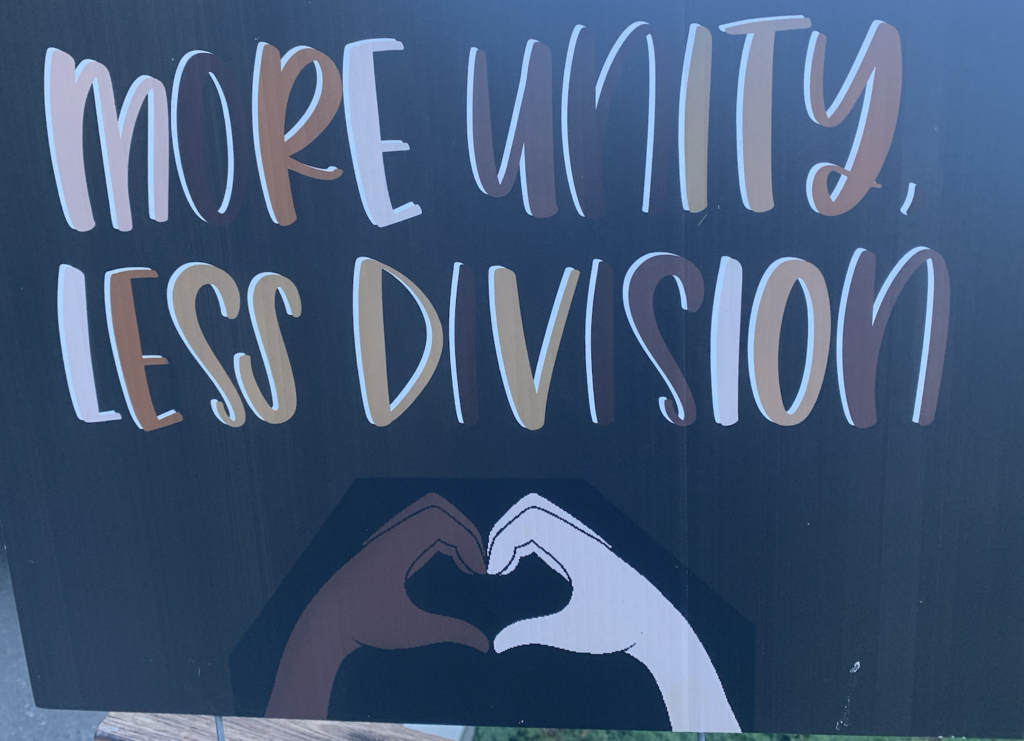 MORE UNITY,
LESS DIVISION